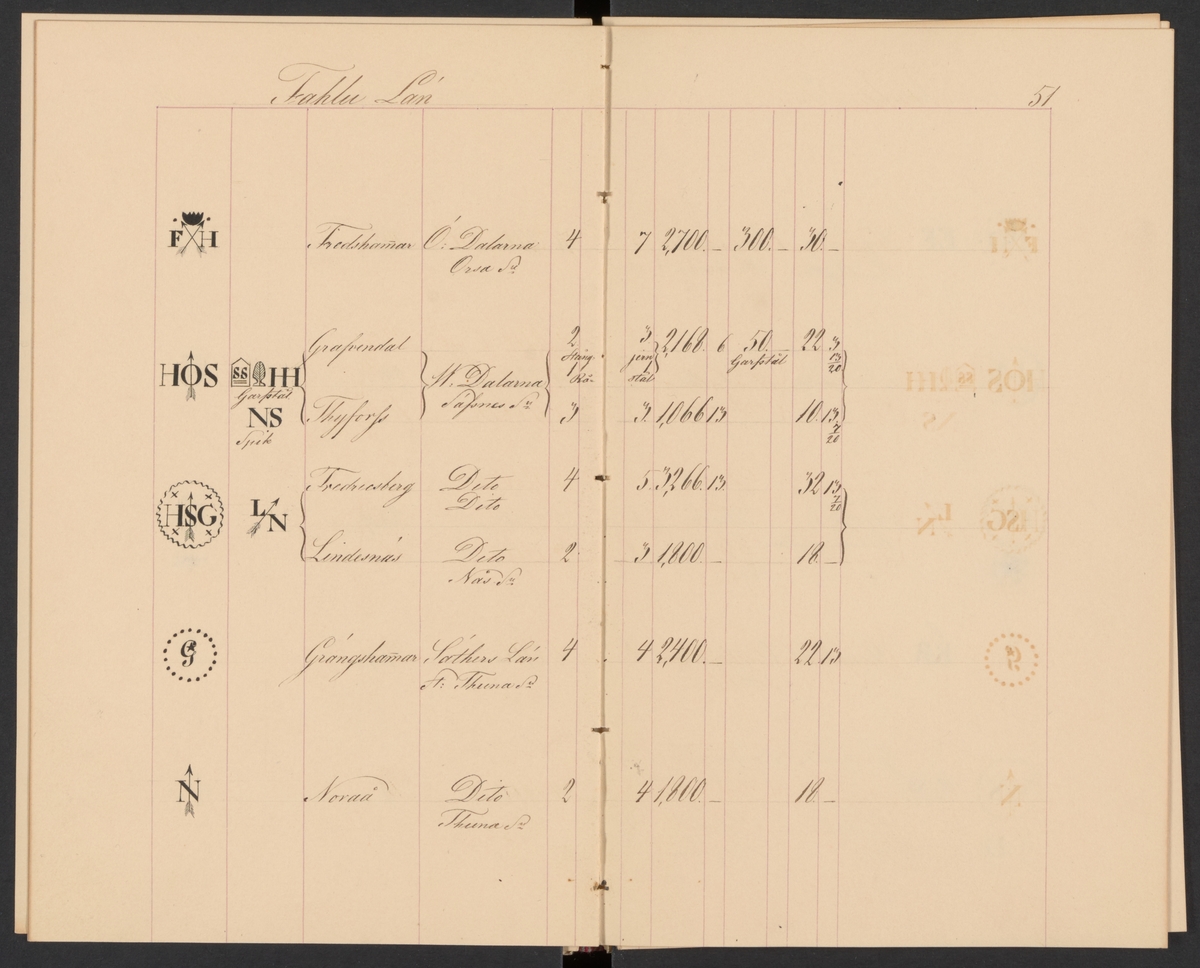 Fahlu Län 51
F H Fredshamar Ö: Dalarna 4 7 2,700. — 300. — 30. —
Orsa Sn
Grafvendal 2 3 2,168. 6 50. — 22 3 13/20
Stång jern Garfstål
HOS SS HH W. Dalarna Rå- stål
Garfstål Säfsnes Sn
NS Thyforss 3 3. 1,066 13 10. 13 7/20
Spik
Fredricsberg Dito 4 5 3,266. 13. 32 13 7/20
Dito
HSG LN
Lindesnäs Dito 2 3 1,800. — 18. —
Nås Sn
G Grängshamar Säthers Län 4 4 2,400. — 22 13
St: Thuna Sn
N Noraå Dito 2 4 1,800. — 18. —
Thuna Sn